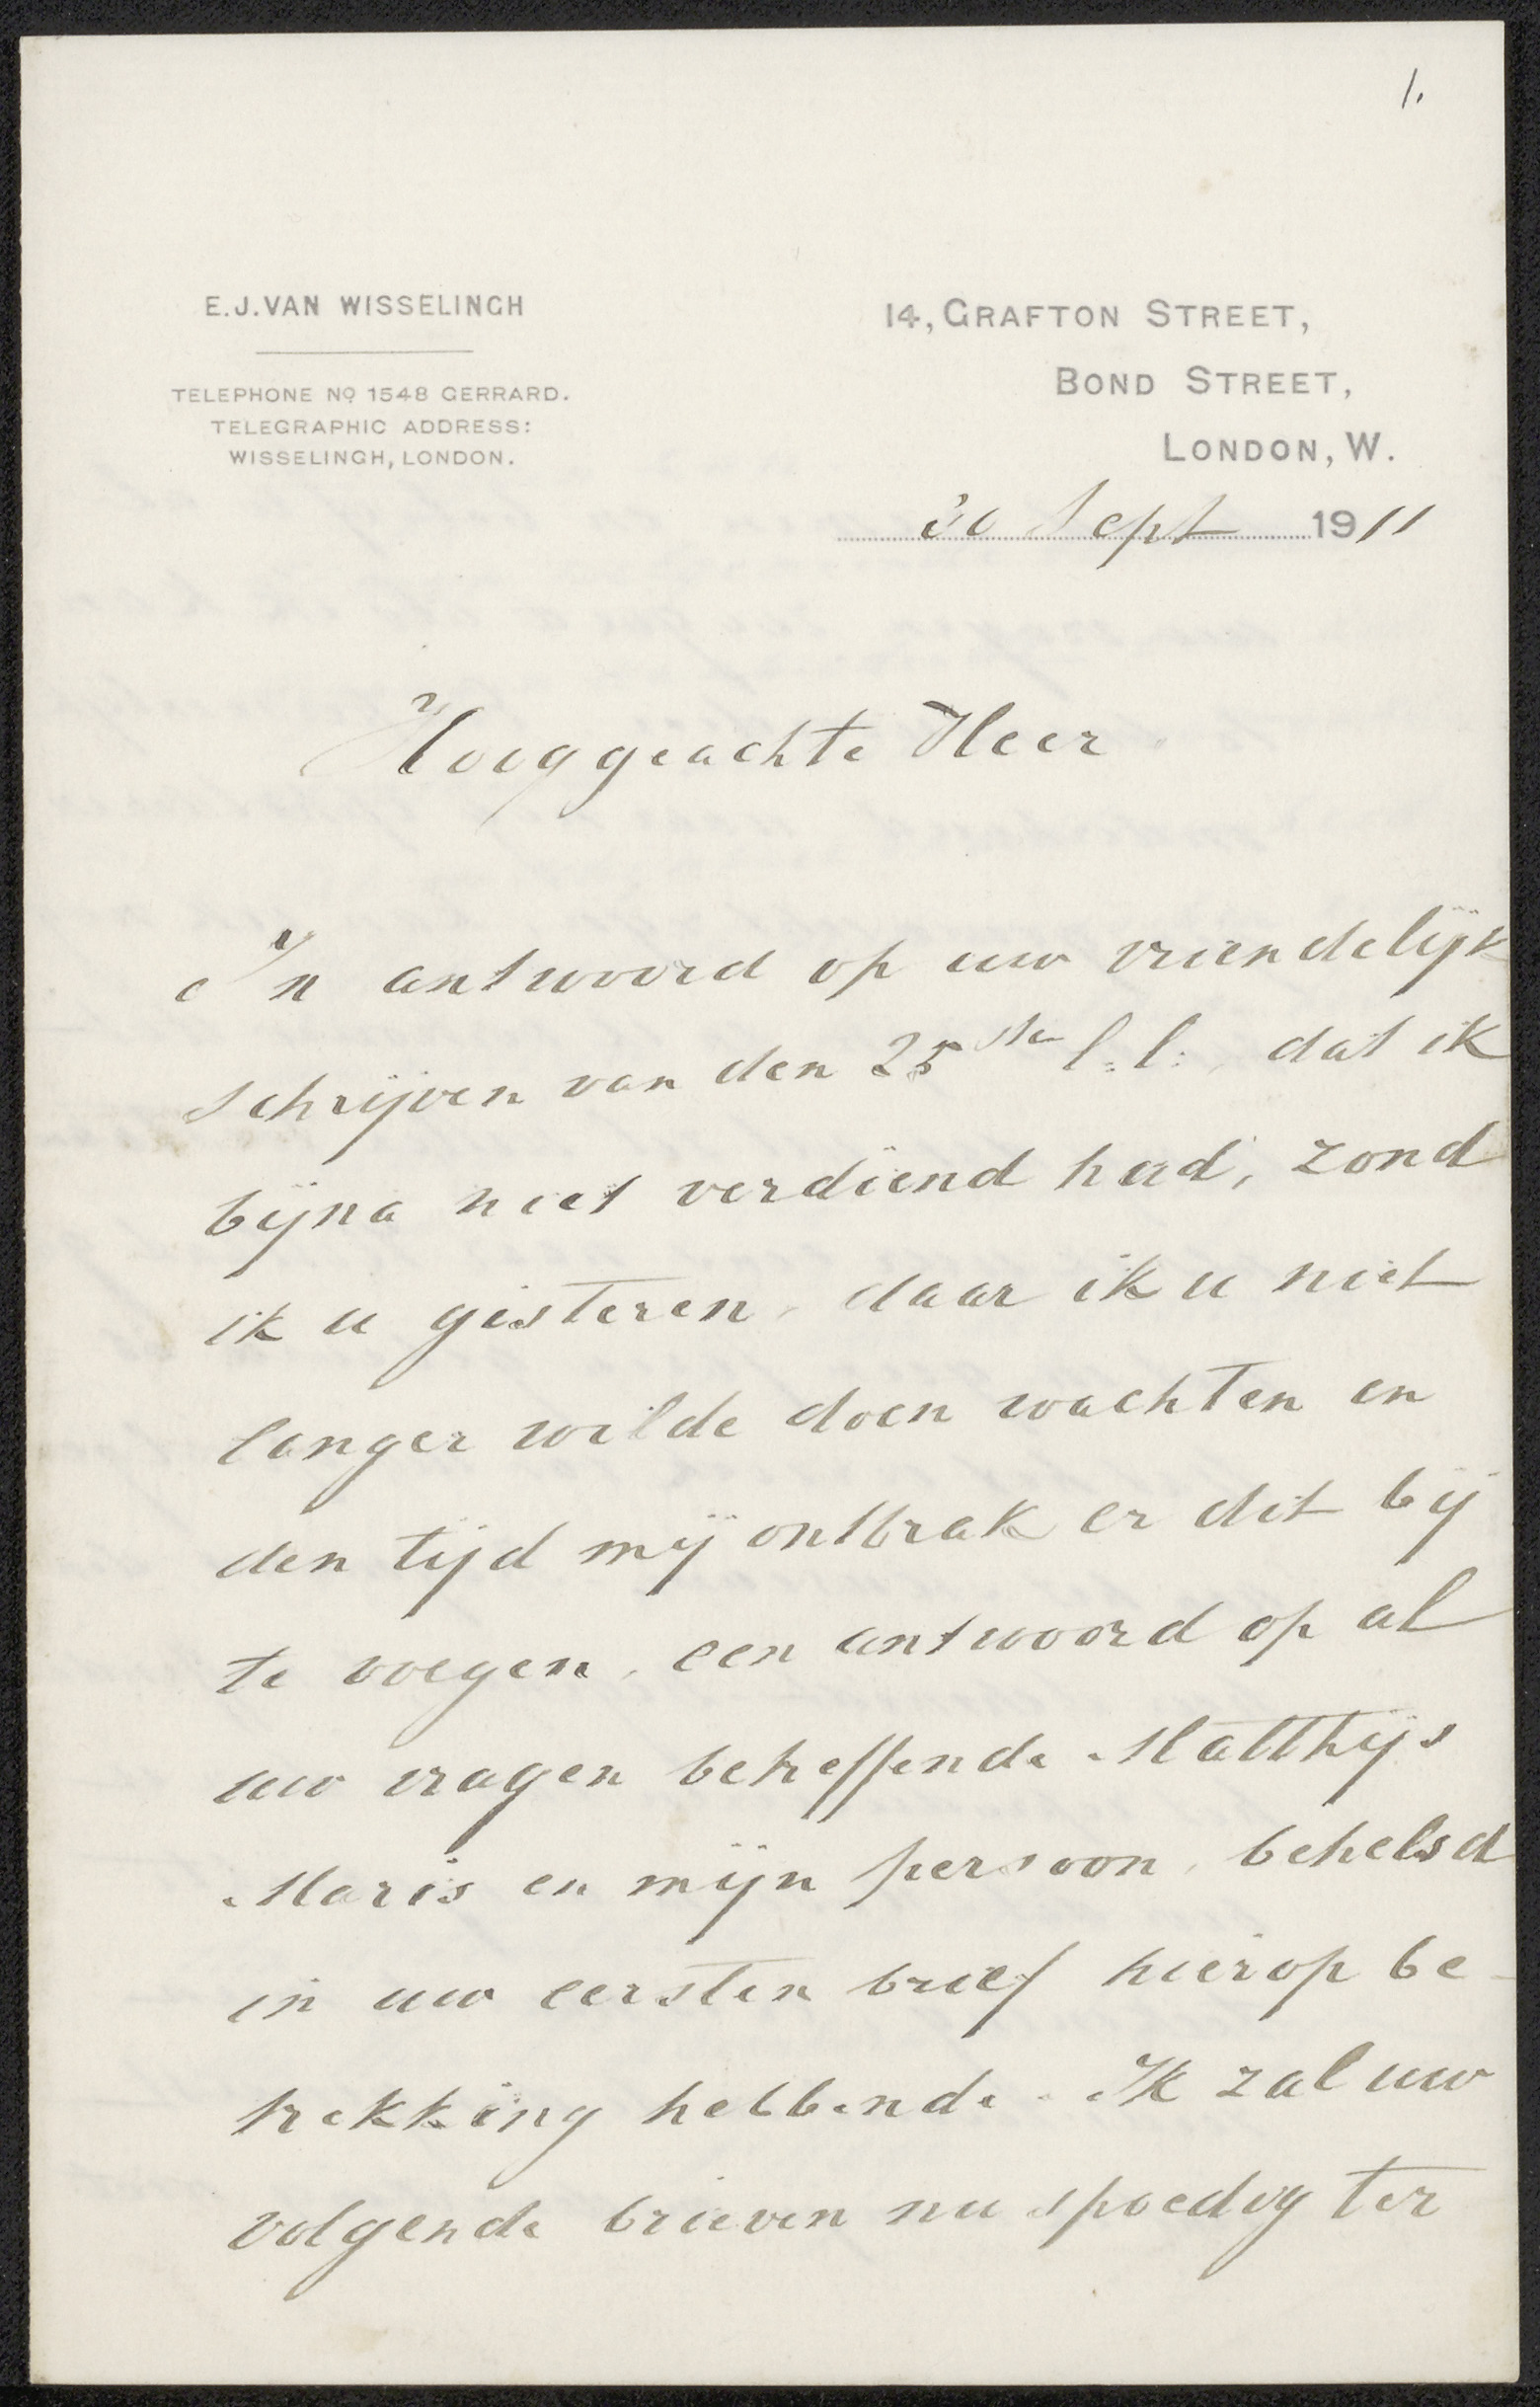 1.
E.J. VAN WISSELINGH
TELEPHONE No 1548 GERRARD.
TELEGRAPHIC ADDRESS:
WISSELINGH, LONDON.
14, GRAFTON STREET,
BOND STREET,
LONDON, W.
30 Sept 1911
Hooggeachte Heer
In antwoord op uw vriendelijk
schrijven van den 25ste l.l., dat ik
bijna niet verdiend had, zond
ik u gisteren, daar ik u niet
langer wilde doen wachten en
den tijd mij ontbrak er dit bij
te voegen, een antwoord op al
uw vragen betreffende Matthijs
Maris en mijn persoon, behelsd
in uw eersten brief hierop be-
trekking hebbende. Ik zal uw
volgende brieven nu spoedig ter